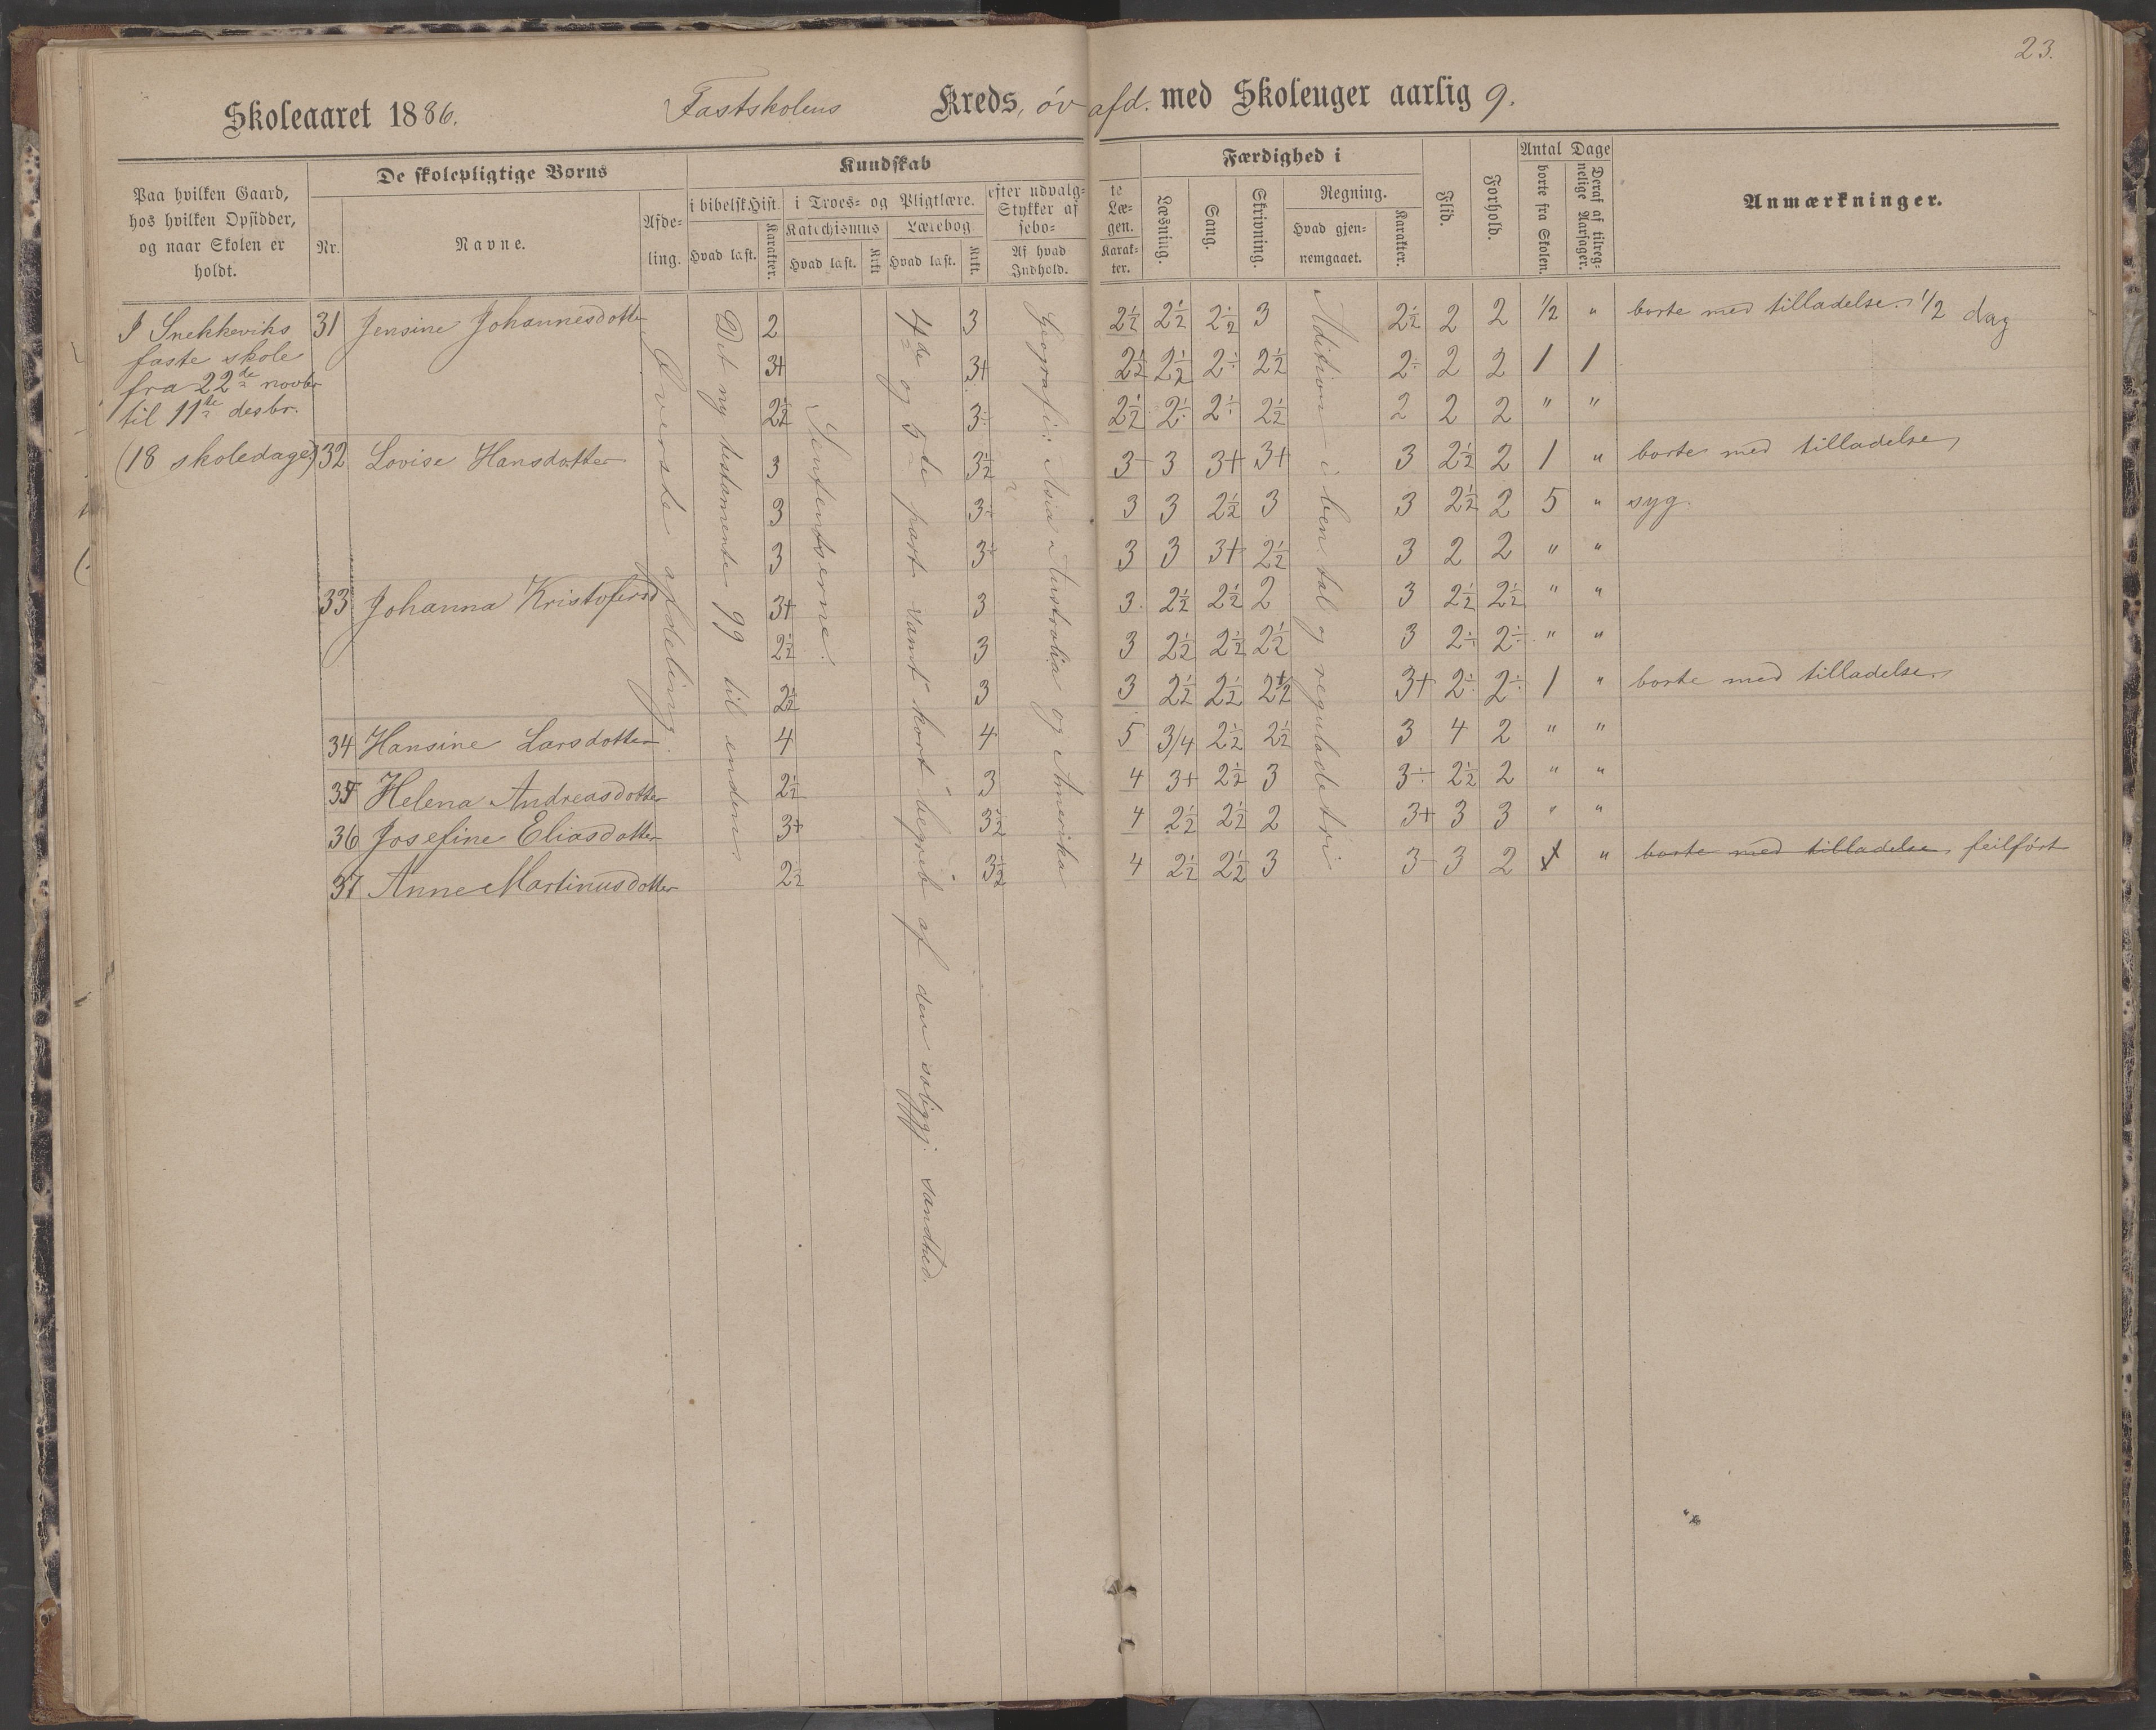 23.
Skoleaaret 1886. Fastskolens Kreds, öv afd. med Skoleuger aarlig 9.
Paa hvilken Gaard, hos hvilken Opsidder, og naar Skolen er holdt.
De skolepligtige Børns
Nr. Navne. Afdeling.
Kundskab
i bibelsk Hist. i Troes- og Pligtlære. efter udvalgte Stykker af Læsebogen.
Hvad læst. Karakter. Katechismus Hvad læst. Krkt. Lærebog Hvad læst. Krkt. Af hvad Indhold. Karakter.
Færdighed i
Læsning. Sang. Skrivning. Regning. Hvad gjennemgaaet. Karakter.
Flid. Forhold.
Antal Dage
borte fra Skolen. Deraf af tilregnelige Aarsager.
Anmærkninger.
I Snekkeviks
faste skole
fra 22de novbr
til 11te desbr.
(18 skoledage)
Øverste afdeling.
Det ny testamente 99 til enden
Sentensterne.
4de og 5de part samt kort begreb af den saliggj. sandhed.
Geografi: Asia Australia og Amerika
Adition i ben. tal og reguladetri
31 Jensine Johannesdotter 2 3 2½ 2½ 2½ 3 2½ 2 2 1/2 " borte med tilladelse 1/2 dag
3+ 3+ 2½ 2½ 2÷ 2½ 2÷ 2 2 1 1
2½ 3÷ 2½ 2÷ 2÷ 2½ 2 2 2 " "
32 Lovise Hansdotter 3 3½ 3÷ 3 3+ 3+ 3 2½ 2 1 " borte med tilladelse
3 3÷ 3 3 2½ 3 3 2½ 2 5 " syg.
3 3÷ 3 3 3+ 2½ 3 2 2 " "
33 Johanna Kristofersd 3+ 3 3 2½ 2½ 2 3 2½ 2½ " "
2½ 3 3 2½ 2½ 2½ 3 2÷ 2÷ " "
2½ 3 3 2½ 2½ 2½ 3+ 2÷ 2÷ 1 " borte med tilladelse
34 Hansine Larsdotter 4 4 5 3/4 2½ 2½ 3 4 2 " "
35 Helena Andreasdotter 2½ 3 4 3+ 2½ 3 3÷ 2½ 2 " "
36 Josefine Eliasdotter 3+ 3½ 4 2½ 2½ 2 3+ 3 3 " "
37 Anne Martinusdotter 2½ 3½ 4 2½ 2½ 3 3÷ 3 2 1 " borte med tilladelse feilfört